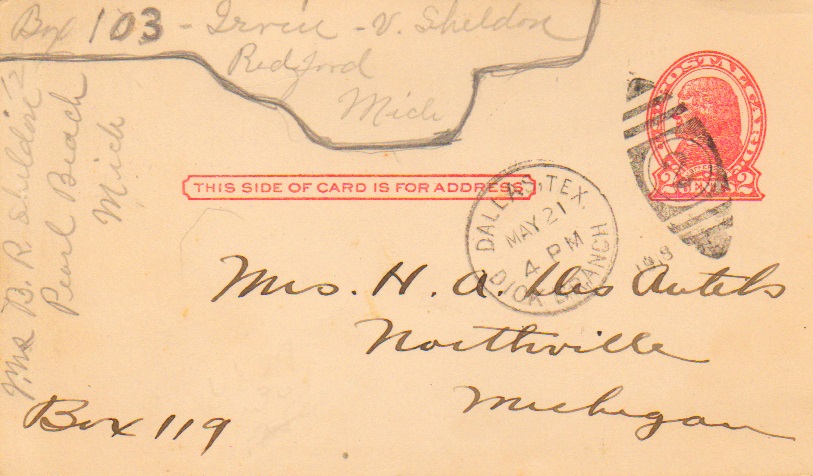 Box 103 - Irvin - V. Sheldon
Redford
Mich
Mrs B. R. Sheldon
Pearl Beach
Mich
U.S. POSTAL CARD
2 CENTS 2
THIS SIDE OF CARD IS FOR ADDRESS
DALLAS, TEX.
MAY 21
4 PM
DICK BRANCH
1918
Mrs. H. A. Des Autels
Northville
Michigan
Box 119